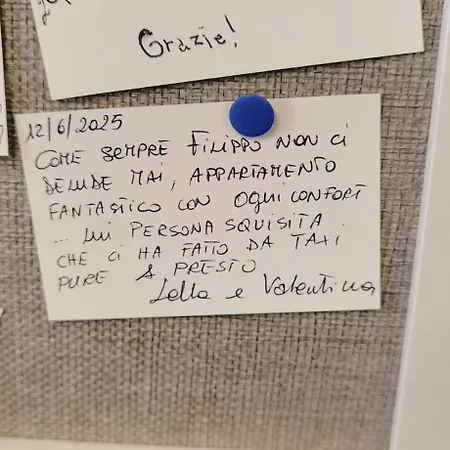 Grazie!
12/6/2025
COME SEMPRE FILIPPO NON CI
DELUDE MAI, APPARTAMENTO
FANTASTICO CON OGNI CONFORT
... LUI PERSONA SQUISITA
CHE CI HA FATTO DA TAXI
PURE A PRESTO
Lella e Valentina